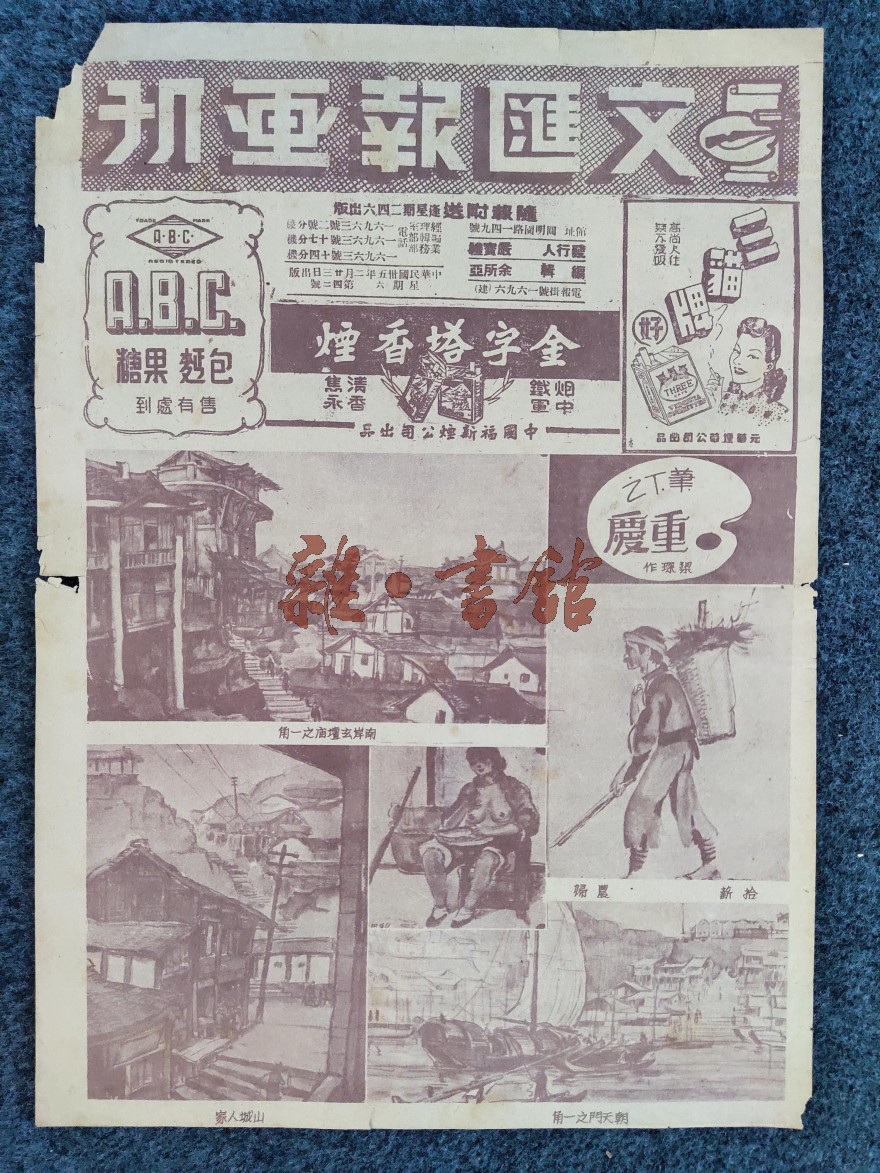 文匯報画刊
隨報附送逢星期二四六出版
館址 圓明園路一四九號
發行人 嚴寶禮
編輯 余所亞
電報掛號一六九六(建)
經理室 一六九六三號二號分機
編輯部 電話 一六九六三號十七分機
業務部 一六九六三號十四分機
中華民國卅五年二月廿三日出版
星期六 第四二號
TRADE MARK
A·B·C
REGISTERED
A.B.C.
包麵 果糖
售有處到
金字塔香煙
烟中鐵軍
清香焦永
中國福新煙公司出品
高尚人仕
三貓牌
好
THREE
元華煙草公司出品
筆下之
重慶
梁琛作
南岸玄壇庙之一角
拾薪·農婦
山城人家
朝天門之一角
雜·書館